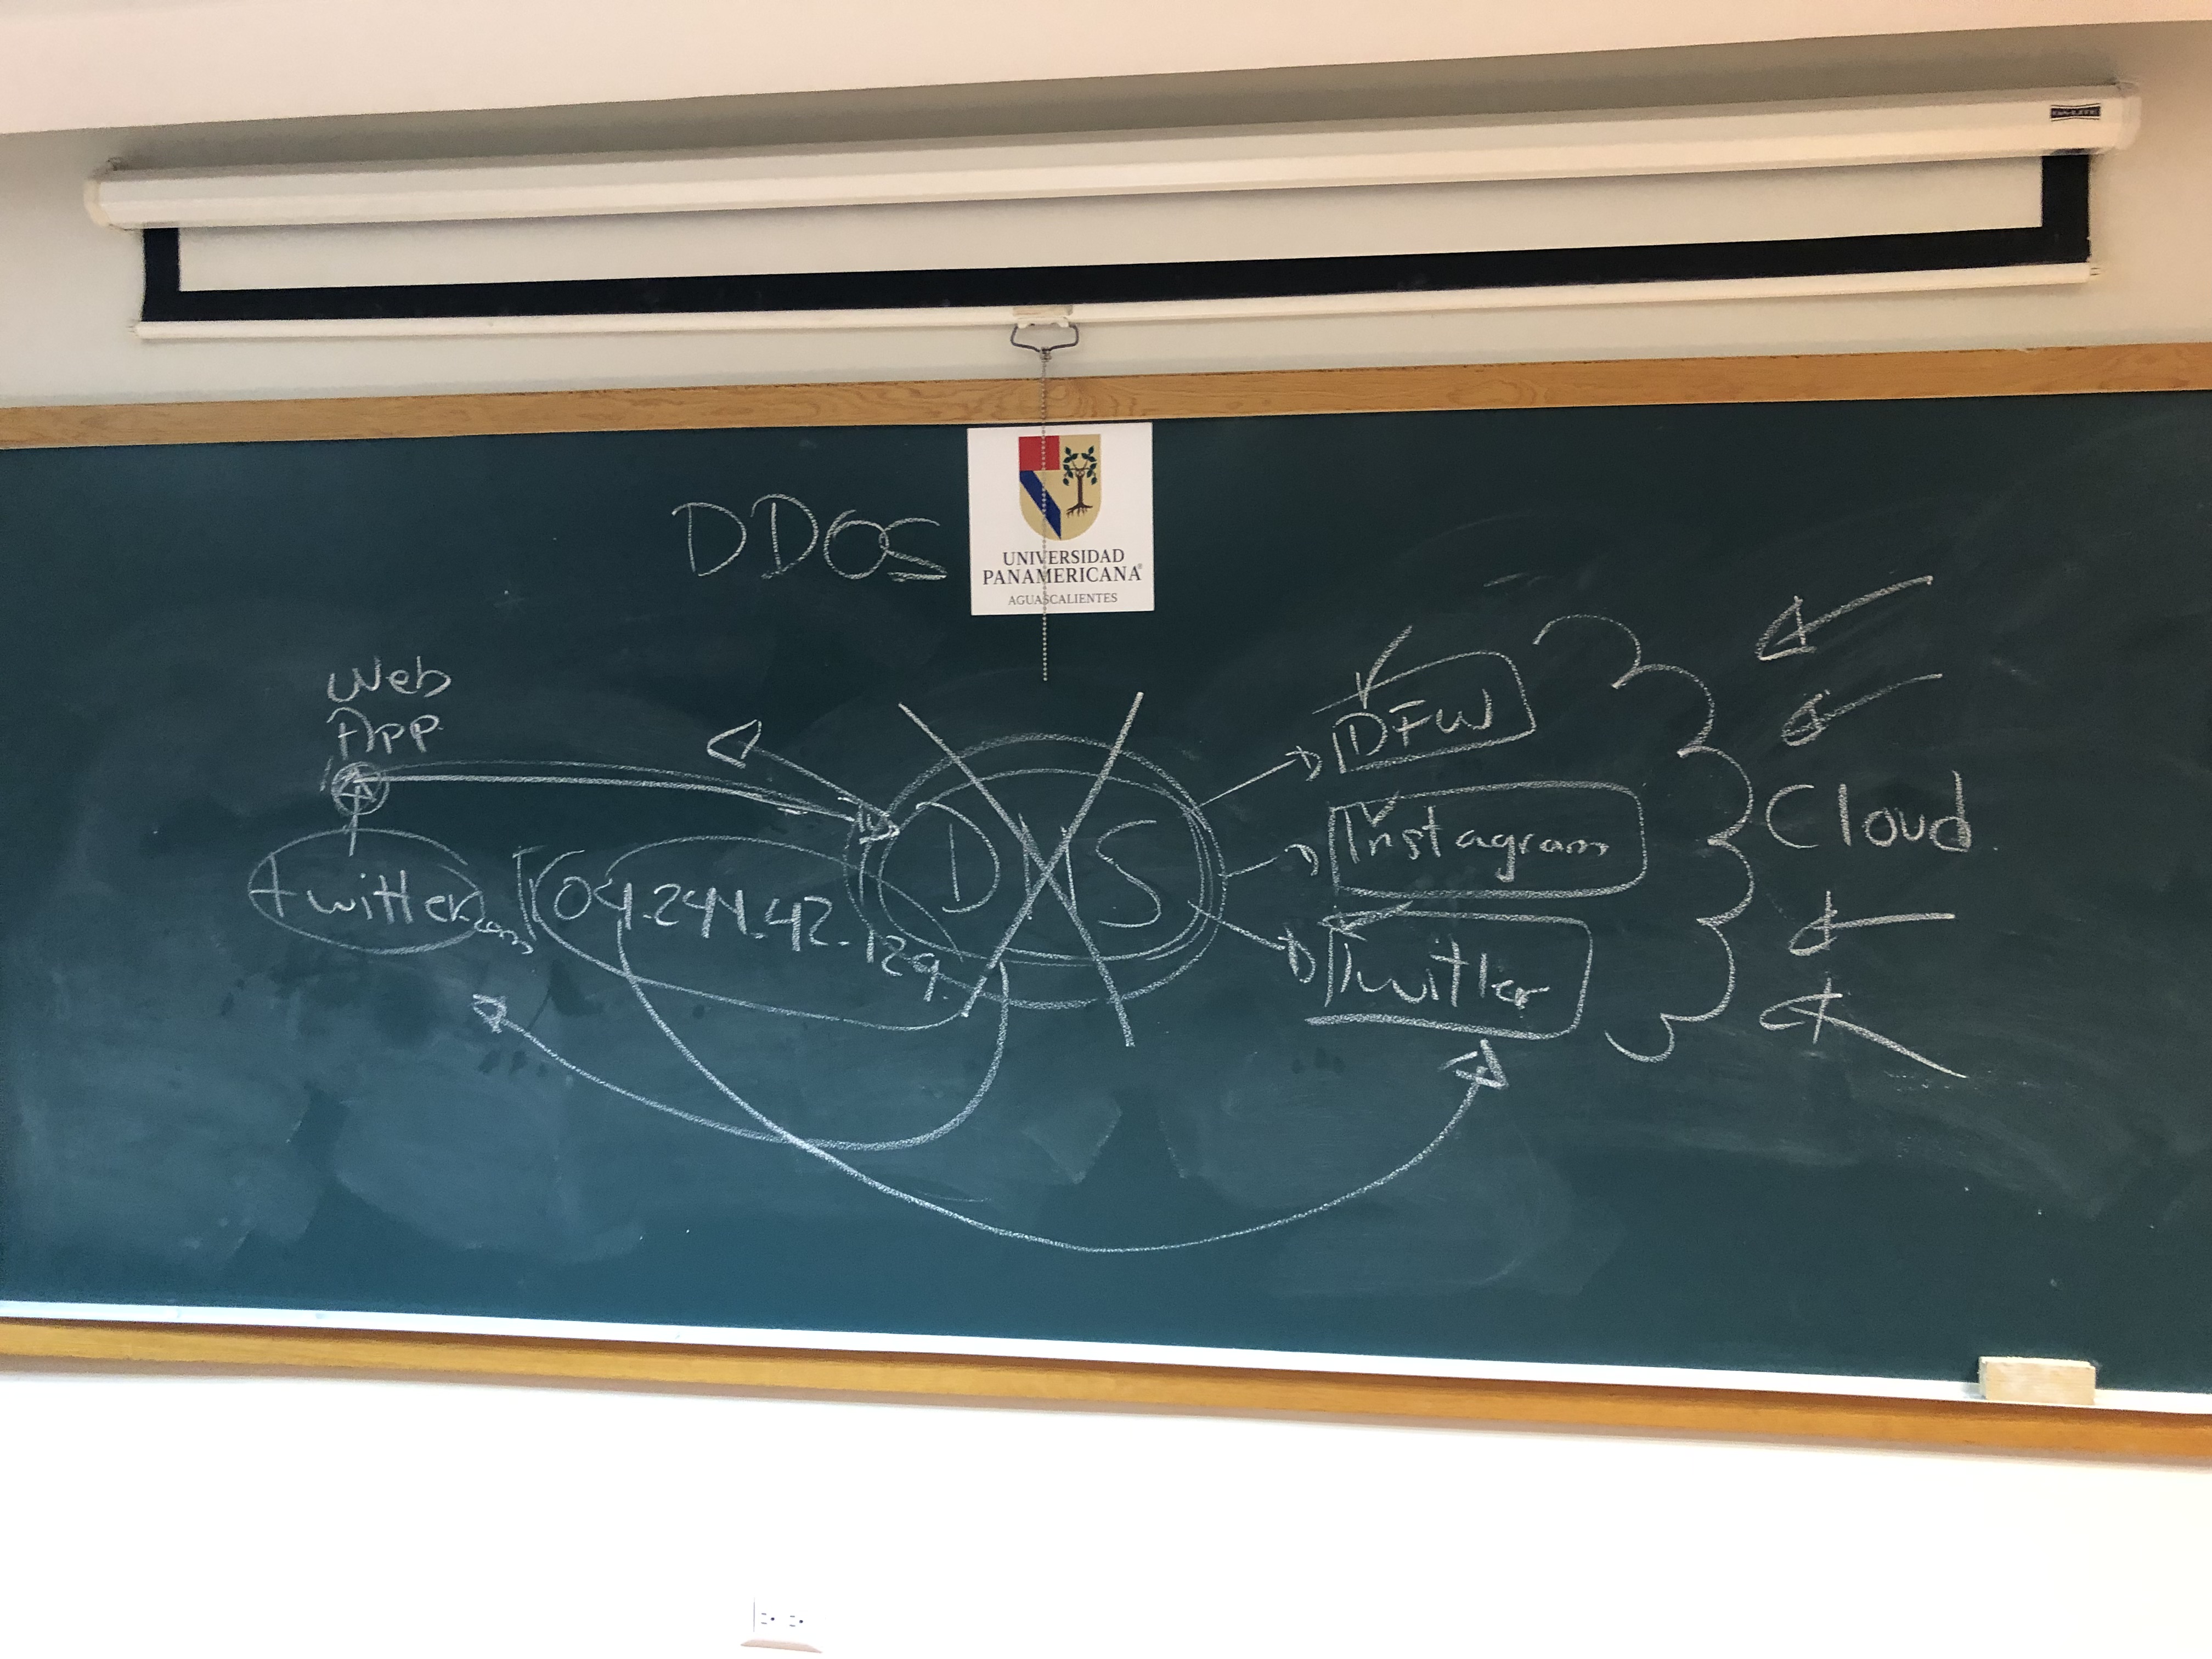 DA-LITE
DDOS
UNIVERSIDAD
PANAMERICANA®
AGUASCALIENTES
Web
App.
twitter.com
104.244.42.129
DNS
DFW
Instagram
Twitter
Cloud.